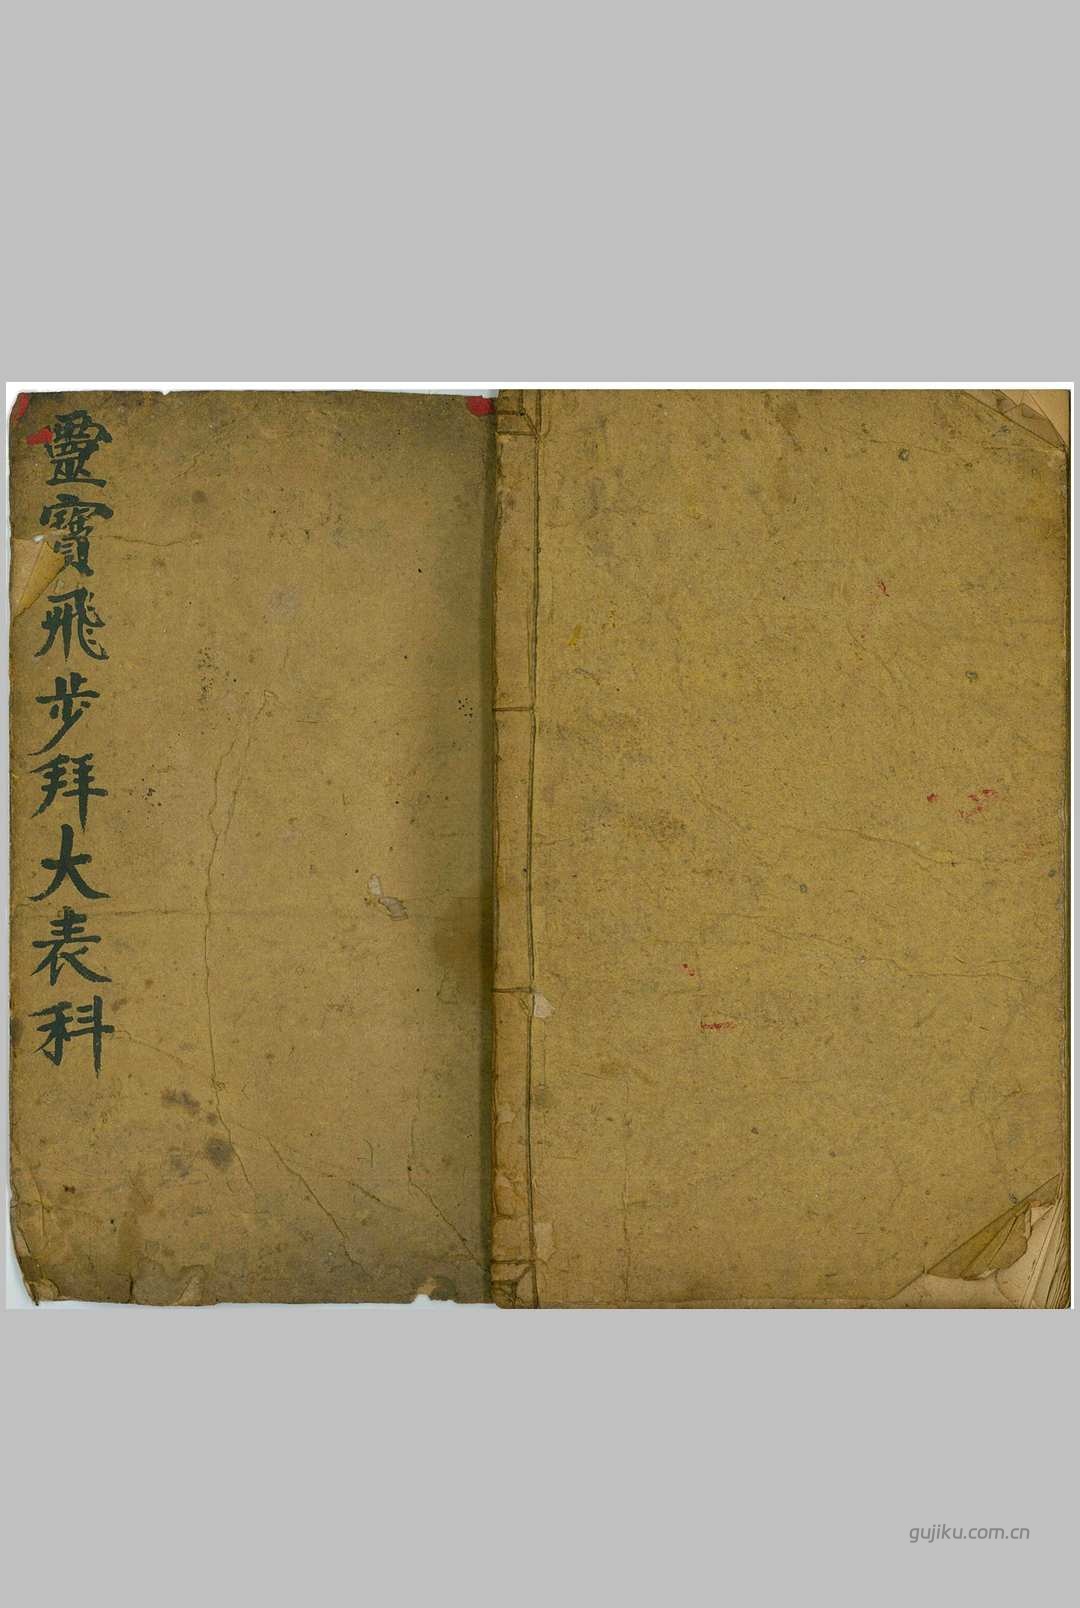 靈寶飛步拜大表科
gujiku.com.cn